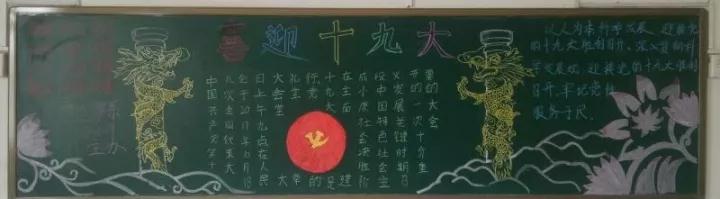 喜迎十九大
中国共产党第十
九次全国代表大
会于2017年10月18
日上午九点在人民
大会堂大
礼堂举
行党的
十九大是
在全面建
成小康社会决胜阶
段中国特色社会主
义发展关键时期召
开的一次十分重
要的大会
以人为本科学发展 迎接党
的十九大胜利召开,深入贯彻科
学发展观,迎接党的十九大胜利
召开,牢记党性
服务于民.